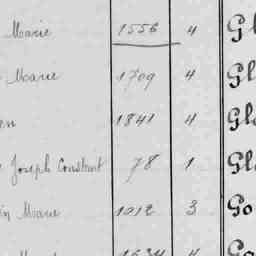 Marie 1556 4 Gl
Marie 1709 4 Gl
en 1841 4 Gl
Joseph Constant 78 1 Gl
in Marie 1012 3 Go
1634 4 Go